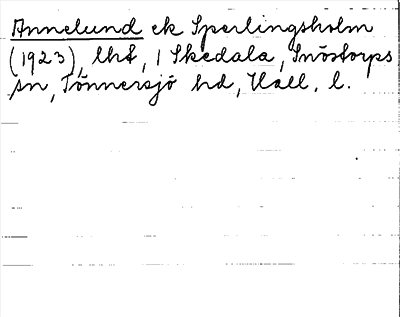 Annelund ek Sperlingsholm
(1923), lht, 1 Skedala, Snöstorps
sn, Tönnersjö hd, Hall. l.